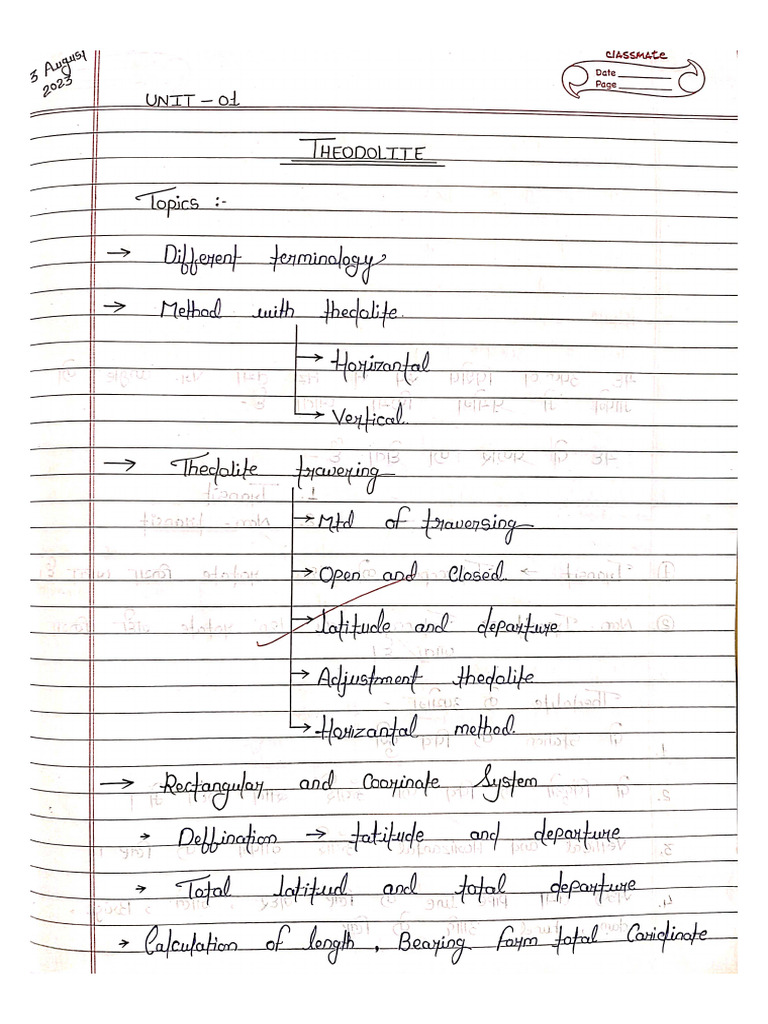 3 August
2023
classmate
Date
Page
UNIT - 01
THEODOLITE
Topics :-
→ Different terminology
→ Method with thedolite.
→ Horizantal
→ Vertical.
→ Thedolite travering
→ Mtd of traversing
→ Open and Closed.
→ latitude and departure
→ Adjustment thedolite
→ Horizantal method.
→ Rectangular and Coorinate System
→ Deffination → tatitude and departure
→ Total latitud and total departure
→ Calculation of length, Bearing form total Caridinate